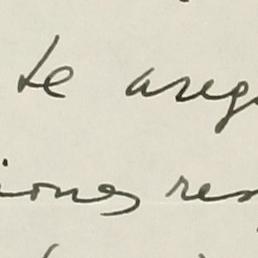 te aseg
iones res